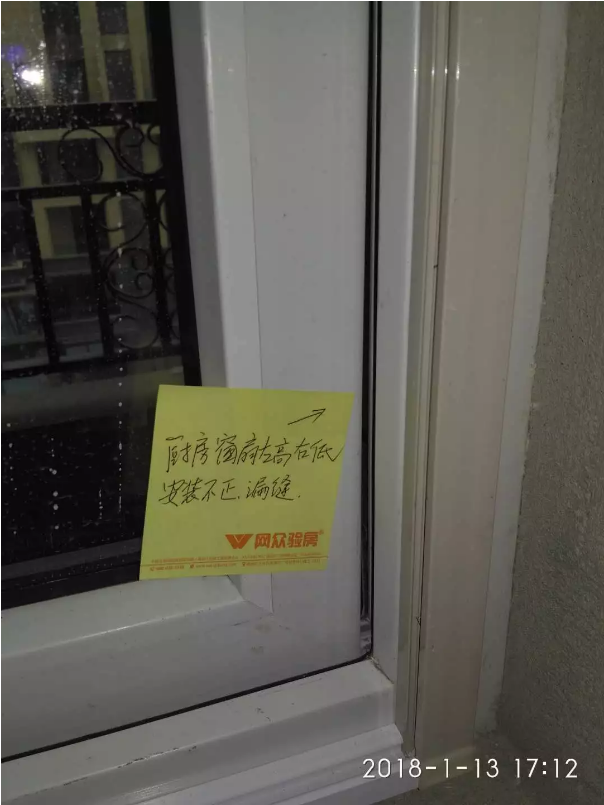 厨房窗扇左高右低
安装不正.漏缝.
网众验房®
2018-1-13 17:12